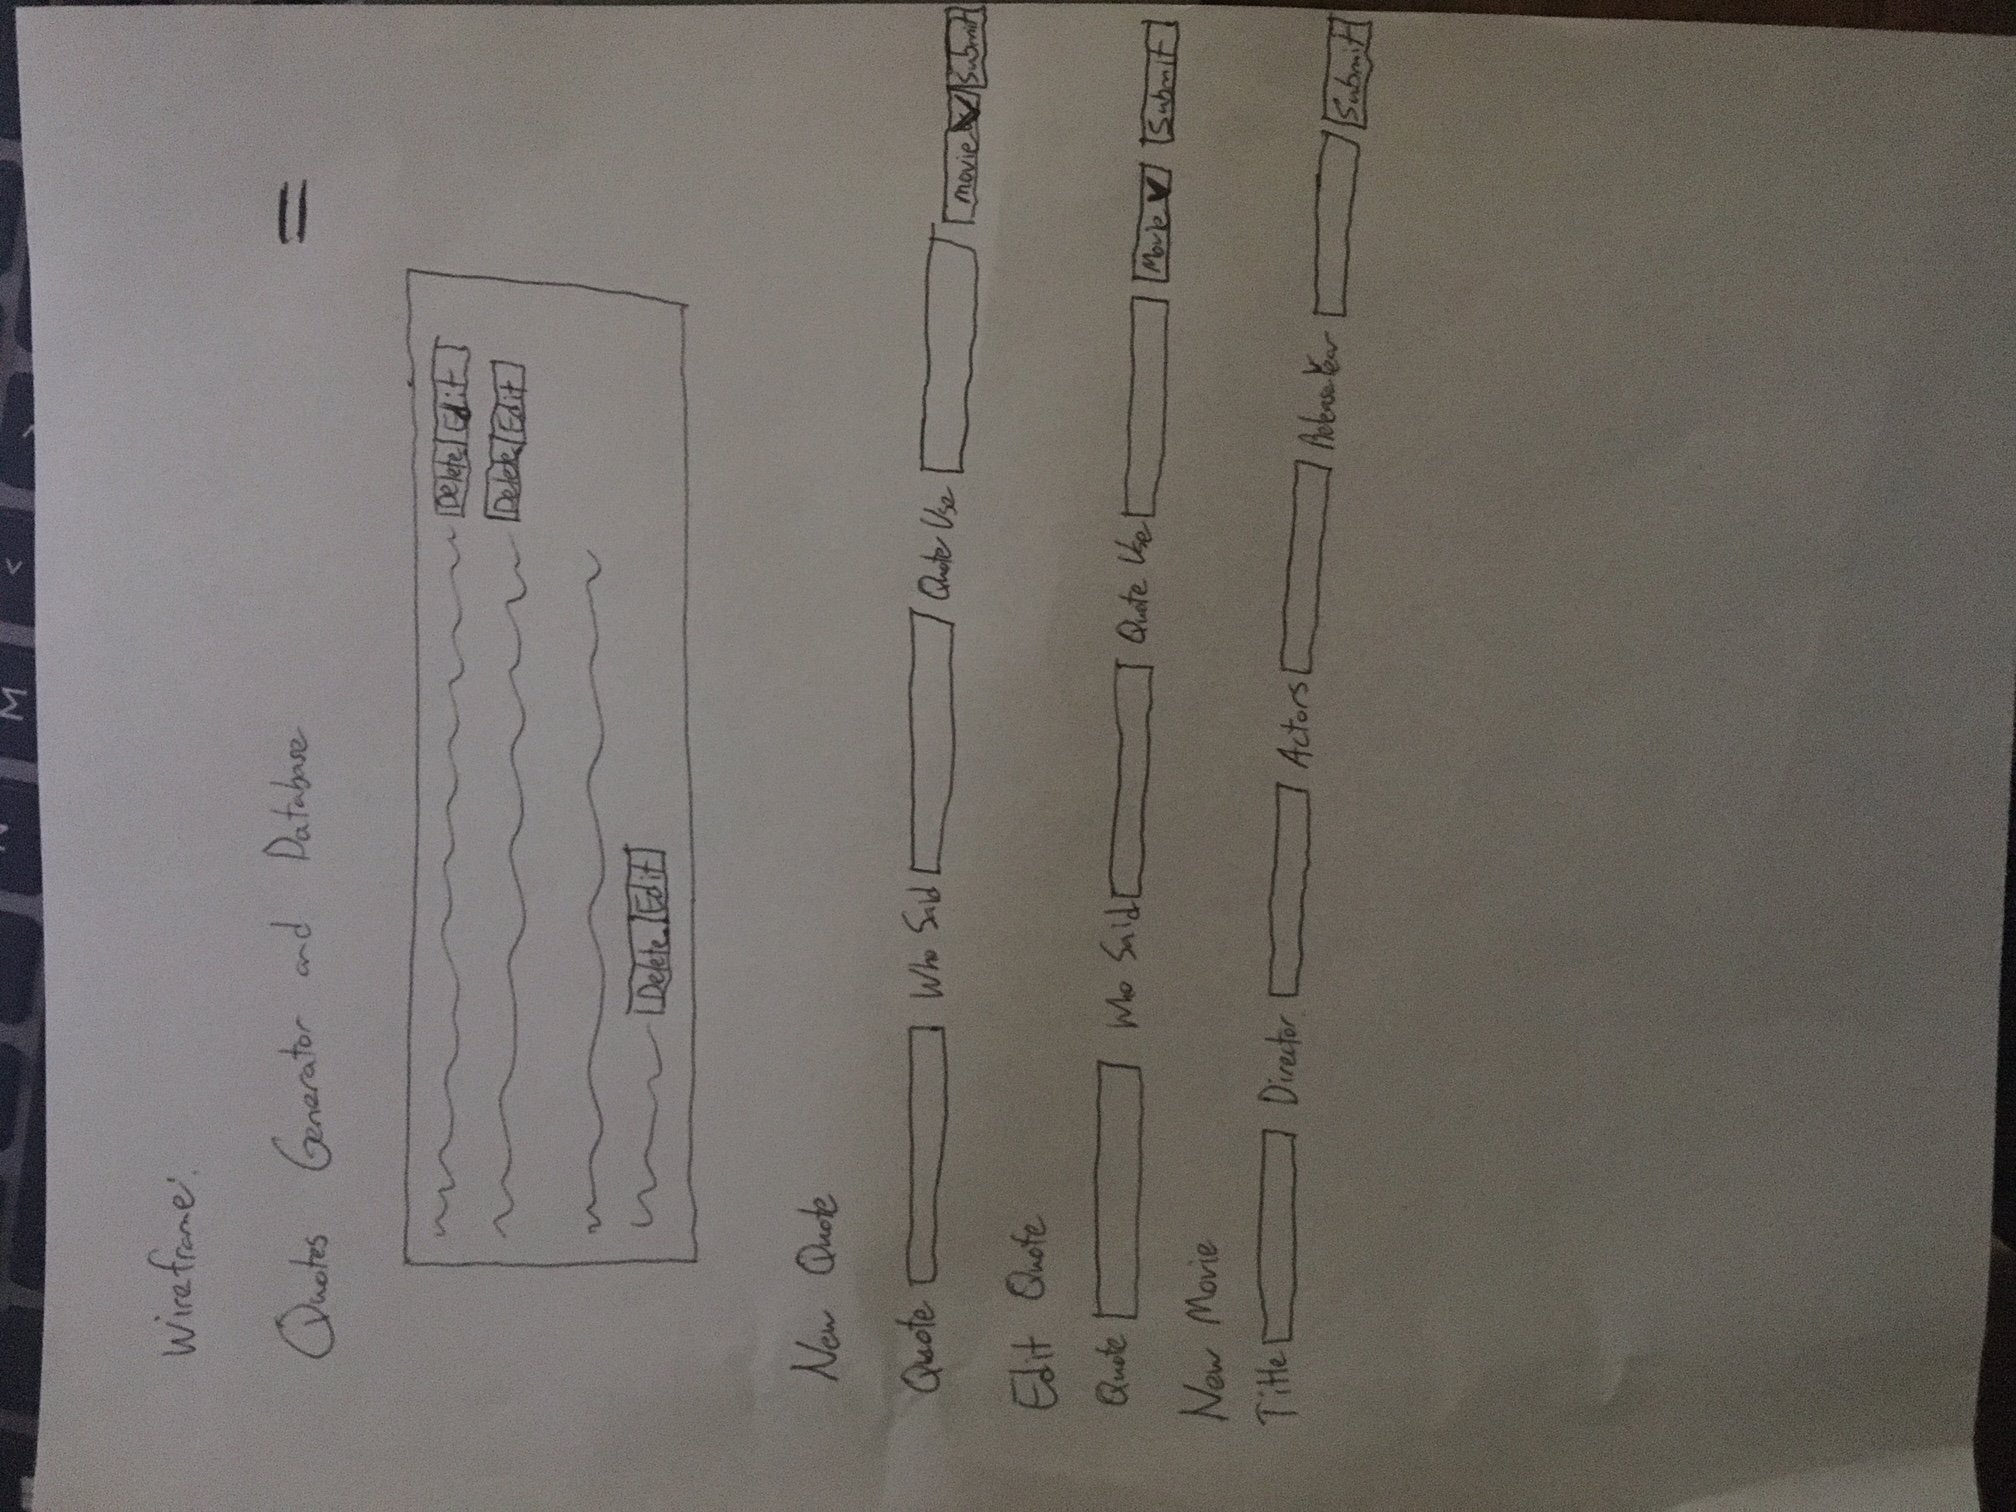 N M <
Wireframe:
Quotes Generator and Database
Delete Edit
Delete Edit
Delete Edit
New Quote
Quote Who Said Quote Use movie Submit
Edit Quote
Quote Who Said Quote Use Movie Submit
New Movie
Title Director Actors Release Year Submit